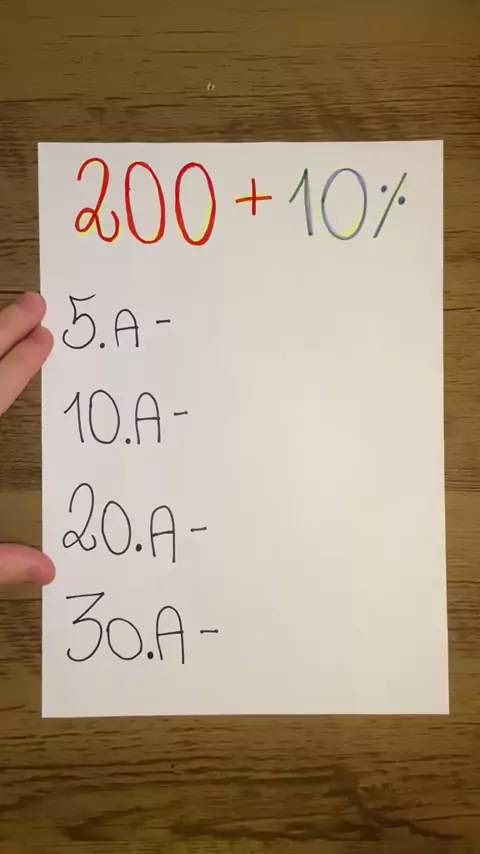 200 + 10%
5.A -
10.A -
20.A -
30.A -